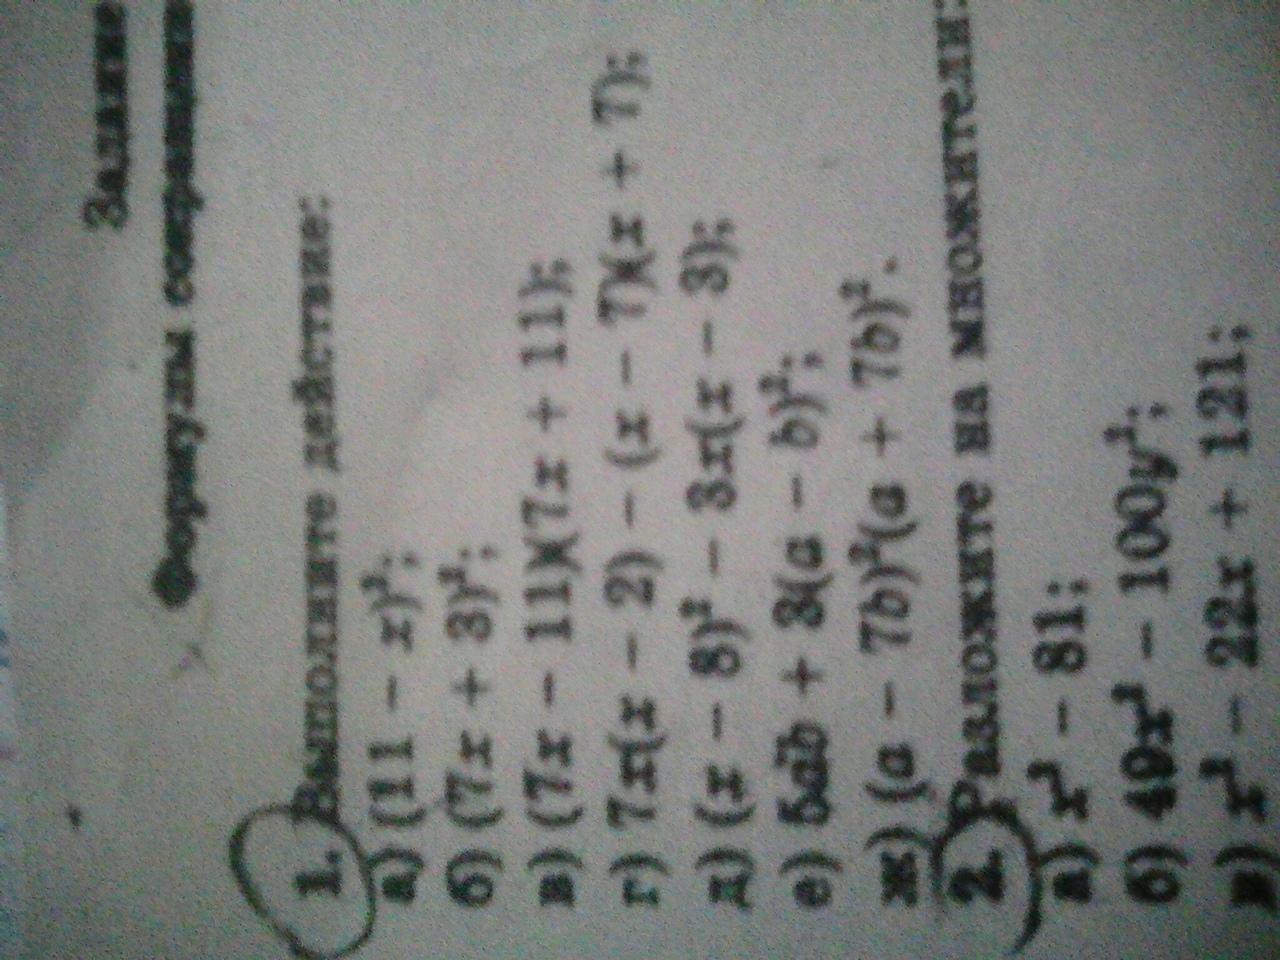 Задание
Формулы сокращен
1. Выполните действие:
а) (11 − x)²;
б) (7x + 3)²;
в) (7x − 11)(7x + 11);
г) 7x(x − 2) − (x − 7)(x + 7);
д) (x − 8)² − 3x(x − 3);
е) 5ab + 3(a − b)²;
ж) (a − 7b)²(a + 7b)².
2. Разложите на множители:
а) x² − 81;
б) 49x² − 100y²;
в) x² − 22x + 121;